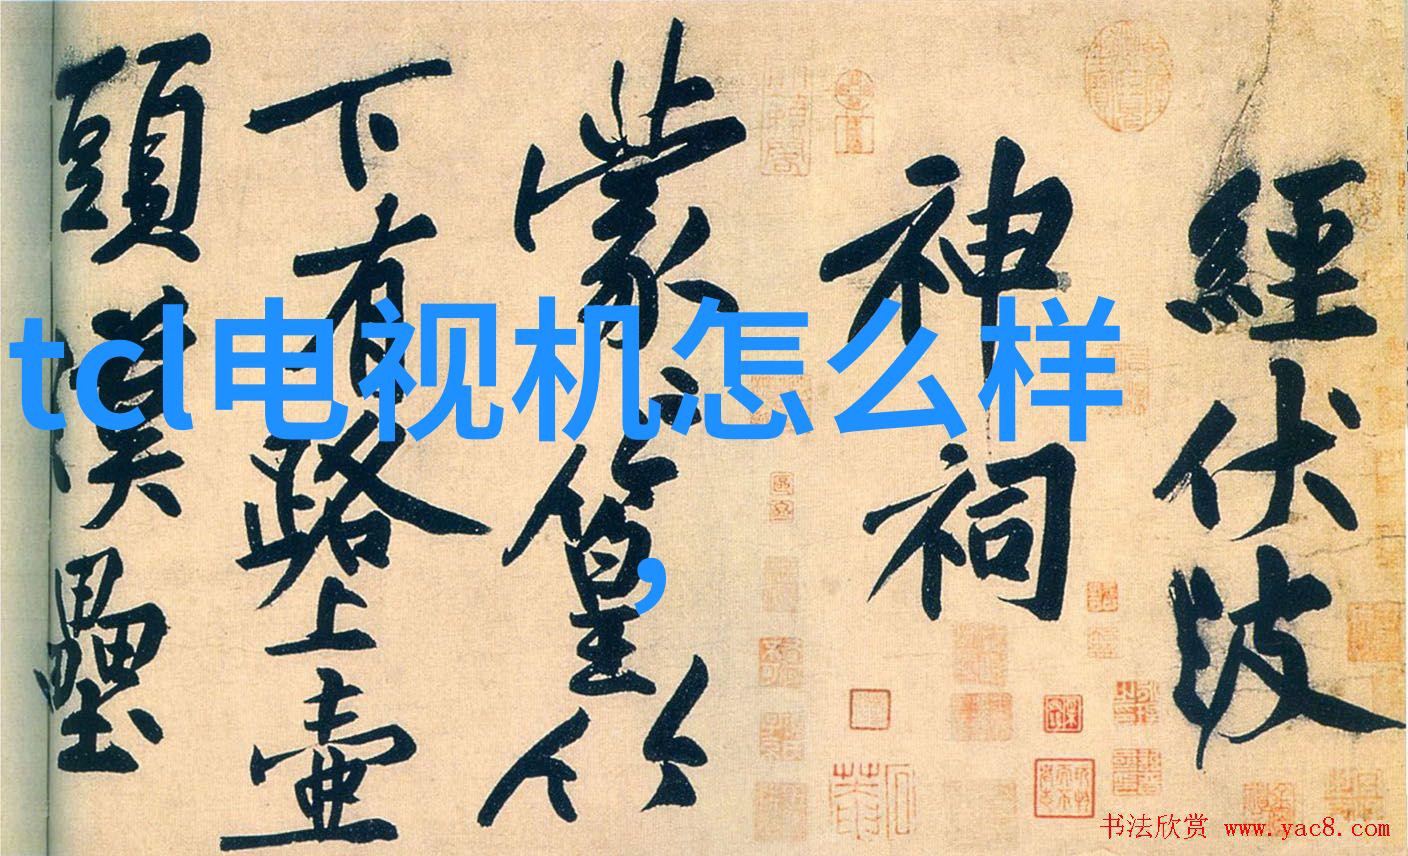 經伏波
神祠
蒙蒙篁竹
下有路上壺
頭漢壘
tcl电视机怎么样
,
书法欣赏 www.yac8.com